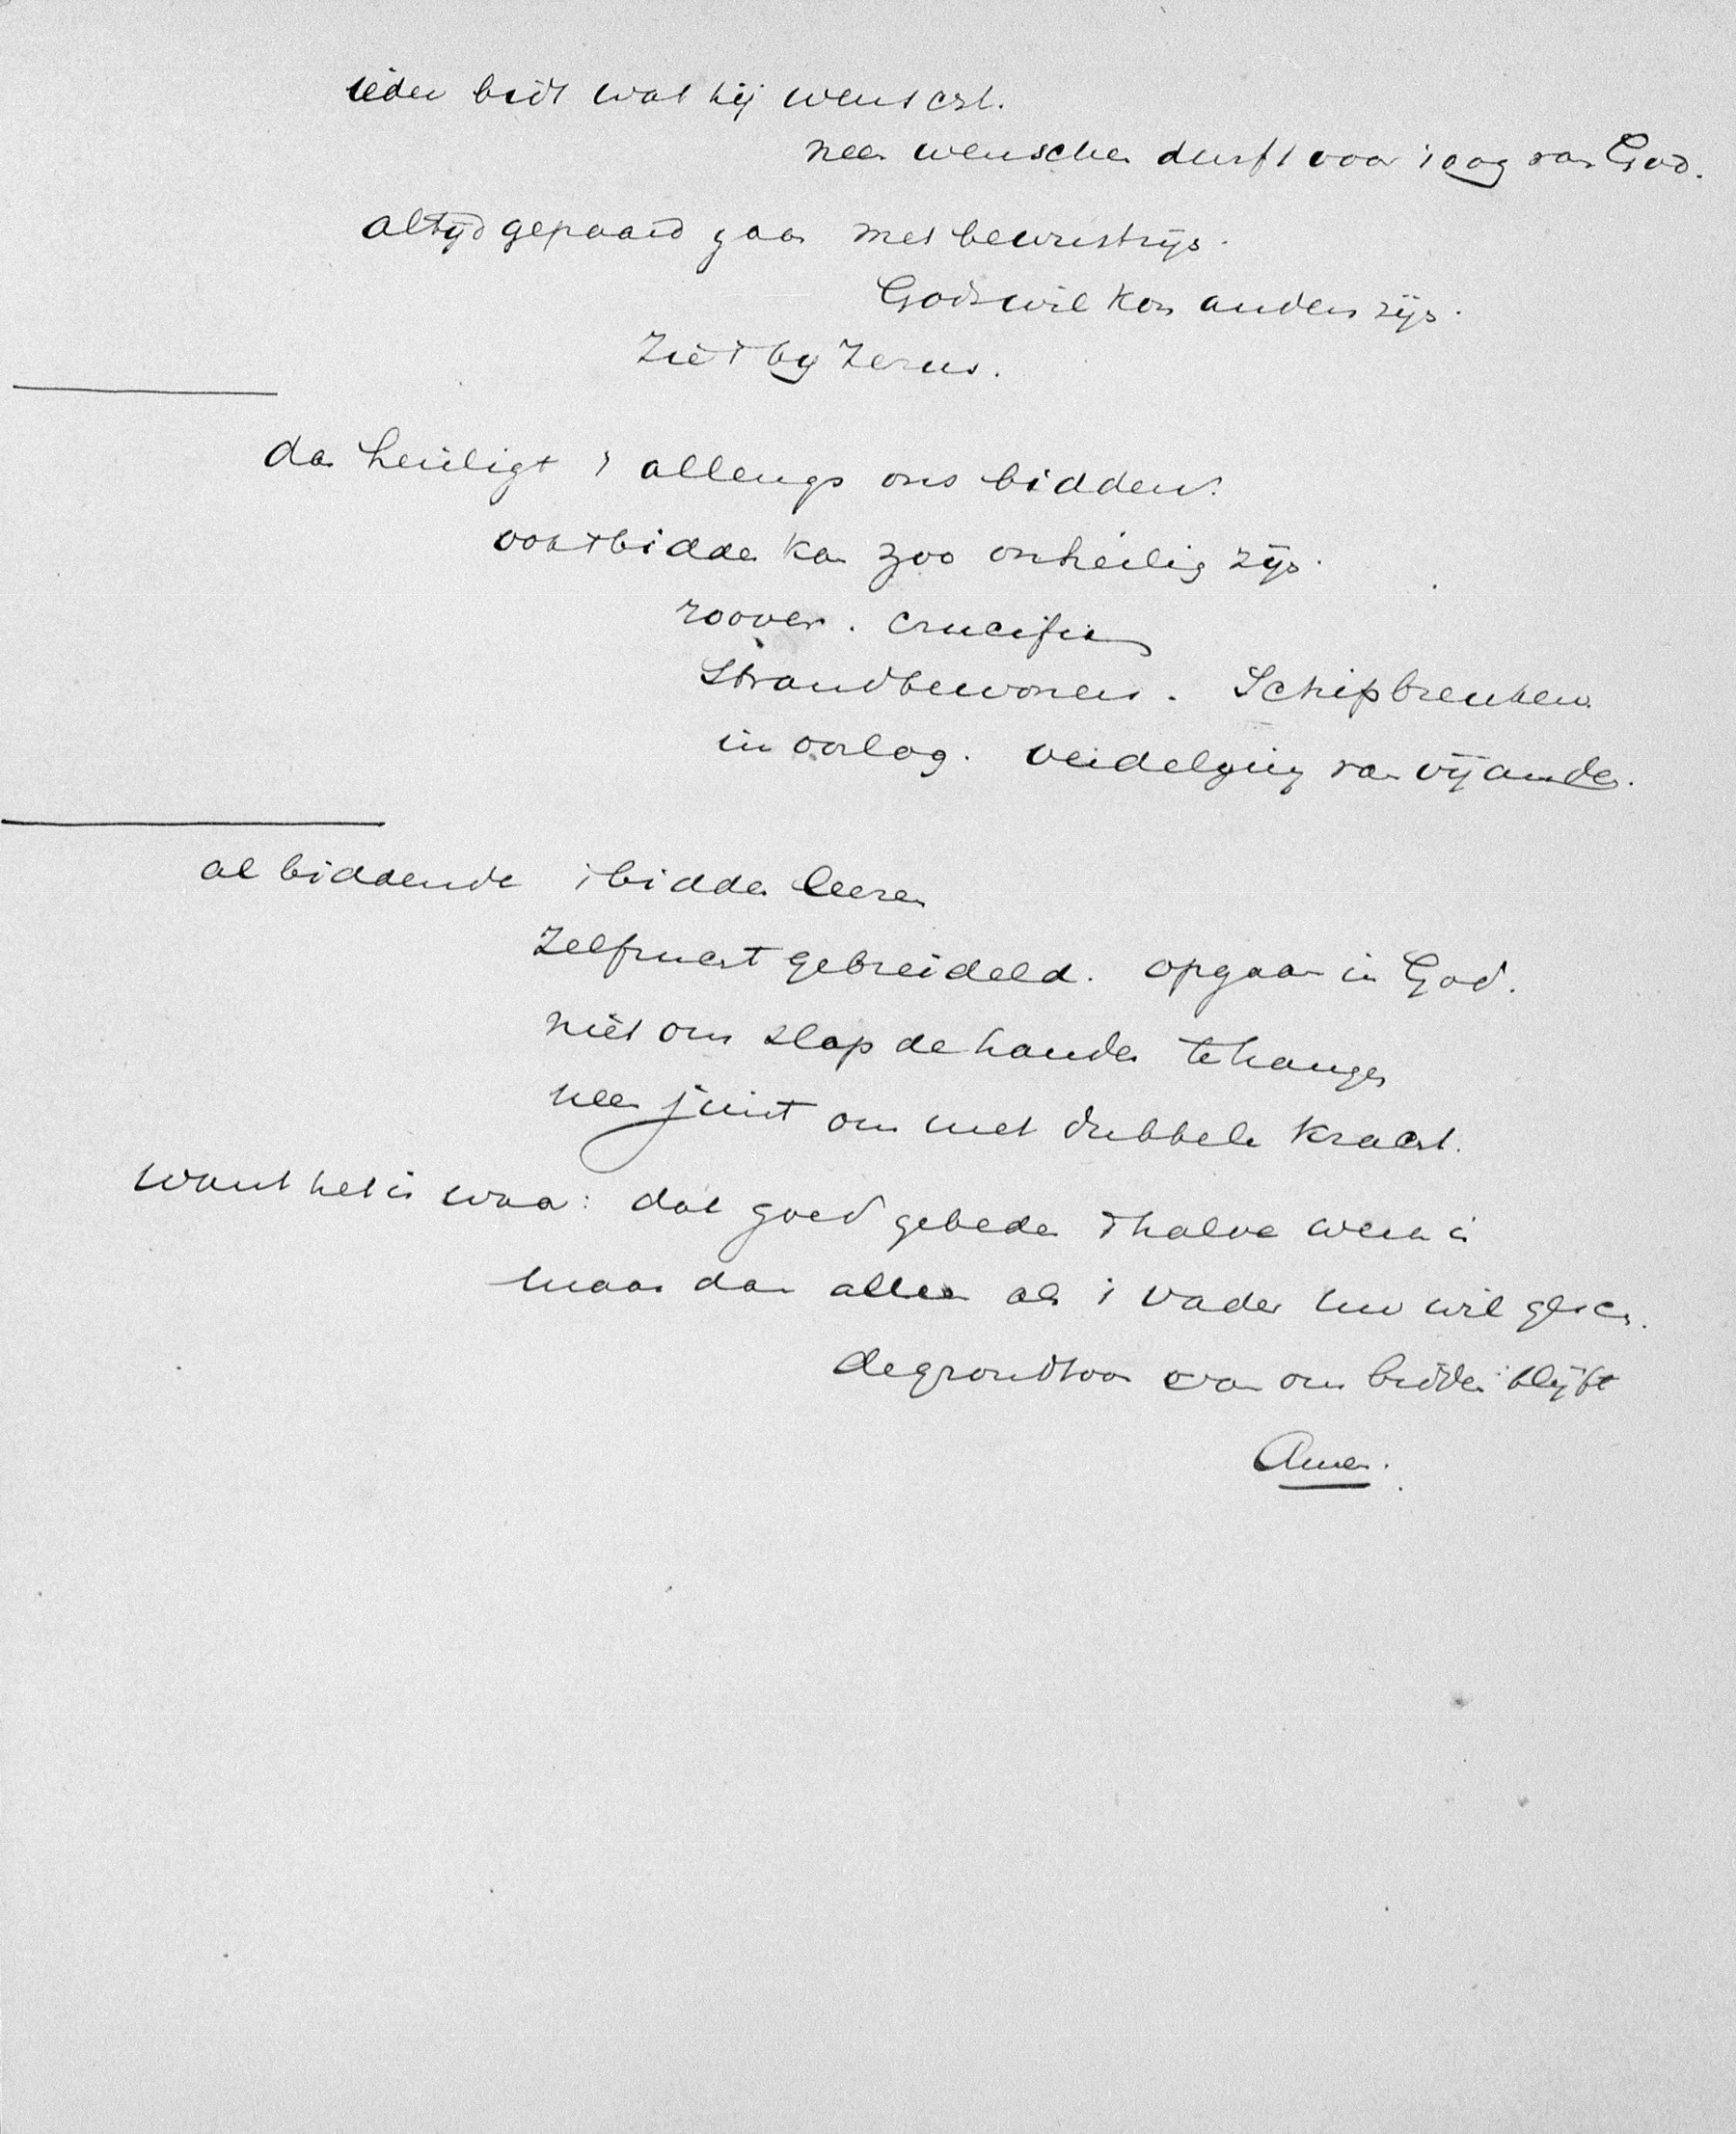 ieder bidt wat hij wenscht.
nee wenschen durft voor 't oog van God.
altijd gepaard gaan met bewustzijn.
Gods wil kon anders zijn.
Ziet bij Jezus.
dan heiligt 't allengs ons bidden.
ook 't bidden kan zoo onheilig zijn.
roover. crucifix
Strandbewoners. Schipbreuken.
in oorlog. verdelging van vijanden.
al biddende 't bidden leeren
Zelfzucht gebreideld. opgaan in God.
niet om slap de handen te hangen
neen juist om met dubbele kracht.
want het is waar: dat goed gebeden 't halve werk is
maar dan alleen als 't Vader Uw wil gesch.
de grondtoon van ons bidden blijft
Amen.